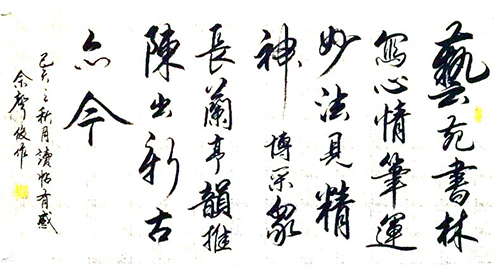 藝苑書林
寫心情筆運
妙法見精
神博采眾
長蘭亭韻推
陳出新古
亦今
己亥之秋月讀帖有感
余聲俊作